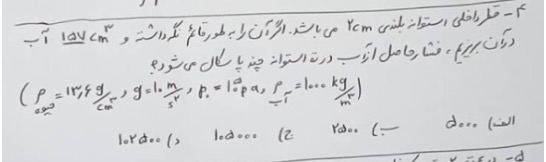 ۴- قطر داخلی استوانه بلندی ۲cm می باشد. اگر آن را به طور قائم نگه داشته و ۱۵۷cm³ آب
در آن بریزیم، فشار حاصل از آب در ته استوانه چند پاسکال می شود؟
(ρ جیوه =۱۳,۶ g/cm³ , g=۱۰ m/s² , p₀=۱۰⁵ pa , ρ آب =۱۰۰۰ kg/m³)
الف) ۵۰۰۰ ب) ۲۵۰۰ ج) ۱۰۵۰۰۰ د) ۱۰۲۵۰۰